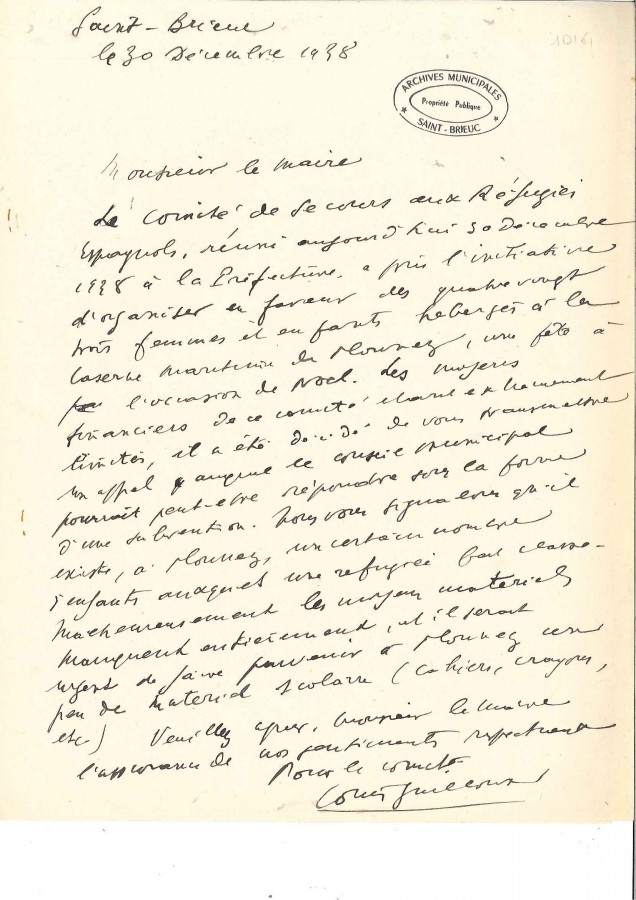 Saint-Brieuc
le 30 Décembre 1938
ARCHIVES MUNICIPALES
Propriété Publique
SAINT-BRIEUC
Monsieur le Maire
Le Comité de Secours aux Réfugiés
Espagnols, réuni aujourd'hui 30 Décembre
1938 à la Préfecture, a pris l'initiative
d'organiser en faveur des quatre vingt
trois femmes et enfants hébergés à la
caserne maritime de Plounez, une fête à
l'occasion de Noel. Les moyens
financiers de ce comité étant extrêmement
limités, il a été décidé de vous transmettre
un appel auquel le conseil municipal
pourrait peut-etre répondre sous la forme
d'une subvention. Nous vous signalons qu'il
existe, à Plounez, un certain nombre
d'enfants auxquels une refugiée fait classe.
Malheureusement les moyens materiels
manquent entièrement, et il serait
urgent de faire parvenir à Plounez un
peu de materiel scolaire (cahiers, crayons,
etc) Veuillez agréer, monsieur le maire
l'assurance de nos sentiments respectueux
Pour le comité
Louis Guilloux